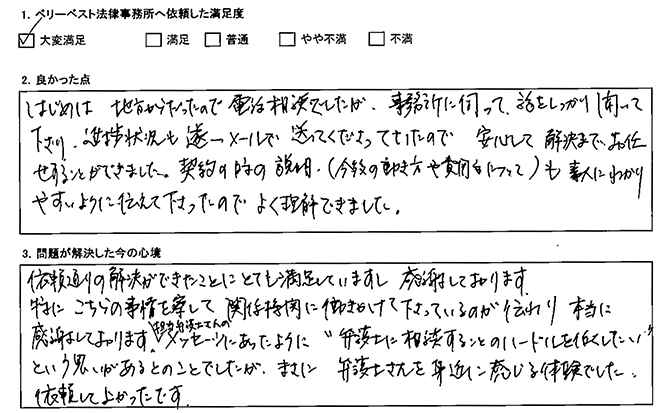 1. ベリーベスト法律事務所へ依頼した満足度
大変満足 満足 普通 やや不満 不満
2. 良かった点
はじめは 地方からだったので 電話相談でしたが、事務所に伺って、話をしっかり聞いて
下さり、進捗状況も逐一メールで送ってくださってきたので 安心して解決までお任
せすることができました。契約の時の説明、(今後の動き方や費用等について)も素人にわかり
やすいように伝えて下さったのでよく理解できました。
3. 問題が解決した今の心境
依頼通りの解決ができたことにとても満足していますし 感謝しております。
特に こちらの事情を察して 関係機関に働きかけて下さっているのが伝わり 本当に
感謝しております。担当弁護士さんのメッセージにあったように "弁護士に相談することのハードルを低くしたい"
という思いがあるとのことでしたが、まさに 弁護士さんを身近に感じる体験でした。
依頼してよかったです。